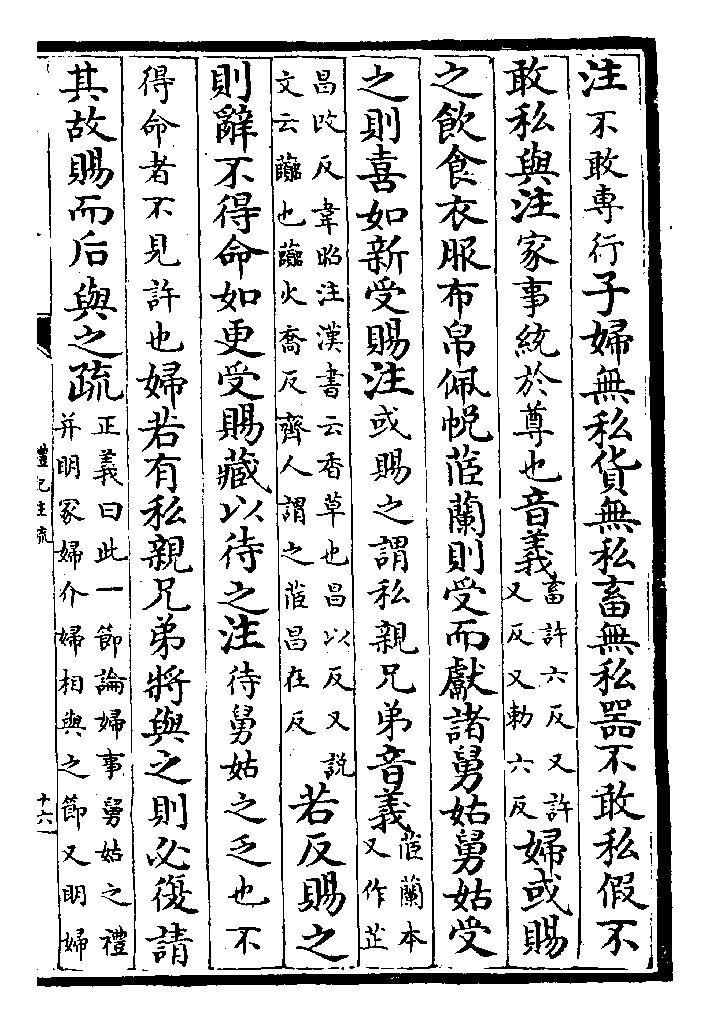 注不敢專行子婦無私貨無私畜無私器不敢私假不
敢私與注家事統於尊也音義畜許六反又許又反又勅六反婦或賜
之飲食衣服布帛佩帨茝蘭則受而獻諸舅姑舅姑受
之則喜如新受賜注或賜之謂私親兄弟音義茝蘭本又作芷
昌改反韋昭注漢書云香草也昌以反又説文云虈也虈火喬反齊人謂之茝昌在反若反賜之
則辭不得命如更受賜藏以待之注待舅姑之乏也不
得命者不見許也婦若有私親兄弟將與之則必復請
其故賜而后與之疏正義曰此一節論婦事舅姑之禮并明冢婦介婦相與之節又明婦
禮記注疏
十六